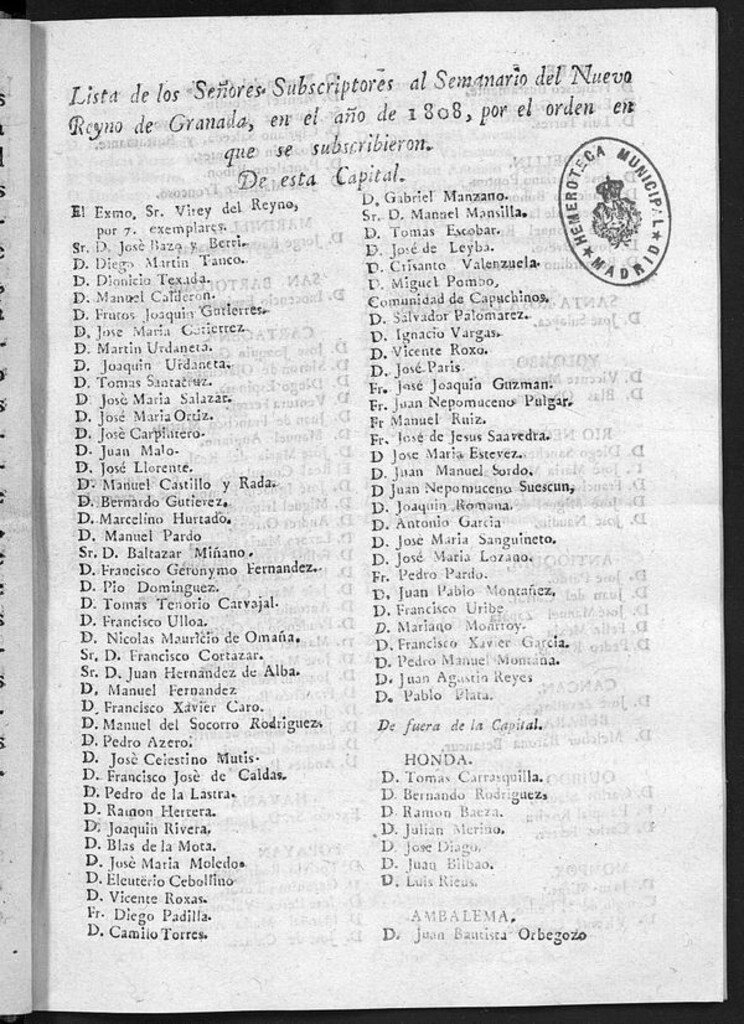 Lista de los Señores Subscriptores al Semanario del Nuevo
Reyno de Granada, en el año de 1808, por el orden en
que se subscribieron.
De esta Capital.
El Exmo. Sr. Virey del Reyno,
por 7. exemplares.
Sr. D. Josè Bazo y Berri.
D. Diego Martin Tanco.
D. Dionicio Texada.
D. Manuel Calderon.
D. Frutos Joaquin Gutierres.
D. Jose Maria Gutierrez.
D. Martin Urdaneta.
D. Joaquin Urdaneta.
D. Tomas Santacruz.
D. Josè Maria Salazar.
D. José Maria Ortiz.
D. Josè Carpintero.
D. Juan Malo.
D. José Llorente.
D. Manuel Castillo y Rada.
D. Bernardo Gutierez.
D. Marcelino Hurtado.
D. Manuel Pardo
Sr. D. Baltazar Miñano.
D. Francisco Geronymo Fernandez.
D. Pio Dominguez.
D. Tomas Tenorio Carvajal.
D. Francisco Ulloa.
D. Nicolas Mauricio de Omaña.
Sr. D. Francisco Cortazar.
Sr. D. Juan Hernandez de Alba.
D. Manuel Fernandez
D. Francisco Xavier Caro.
D. Manuel del Socorro Rodriguez.
D. Pedro Azero.
D. Josè Celestino Mutis.
D. Francisco Josè de Caldas.
D. Pedro de la Lastra.
D. Ramon Herrera.
D. Joaquin Rivera.
D. Blas de la Mota.
D. Josè Maria Moledo.
D. Eleuterio Cebollino
D. Vicente Roxas.
Fr. Diego Padilla.
D. Camilo Torres.
D. Gabriel Manzano.
Sr. D. Manuel Mansilla.
D. Tomas Escobar.
D. José de Leyba.
D. Crisanto Valenzuela.
D. Miguel Pombo,
Comunidad de Capuchinos.
D. Salvador Palomarez.
D. Ignacio Vargas.
D. Vicente Roxo.
D. José Paris
Fr. José Joaquin Guzman.
Fr. Juan Nepomuceno Pulgar.
Fr Manuel Ruiz.
Fr. José de Jesus Saavedra.
D Jose Maria Estevez.
D. Juan Manuel Sordo.
D Juan Nepomuceno Suescun,
D. Joaquin Romana.
D. Antonio Garcia
D. José Maria Sanguineto.
D. José Maria Lozano.
Fr. Pedro Pardo.
D. Juan Pablo Montañez,
D. Francisco Uribe
D. Mariano Monrroy.
D. Francisco Xavier Garcia.
D. Pedro Manuel Montaña.
D. Juan Agustin Reyes
D. Pablo Plata.
De fuera de la Capital.
HONDA.
D. Tomas Carrasquilla.
D. Bernando Rodriguez,
D. Ramon Baeza.
D. Julian Merino.
D. Jose Diago.
D. Juan Bilbao.
D. Luis Rieus.
AMBALEMA.
D. Juan Bautista Orbegozo
HEMEROTECA MUNICIPAL
★ MADRID ★